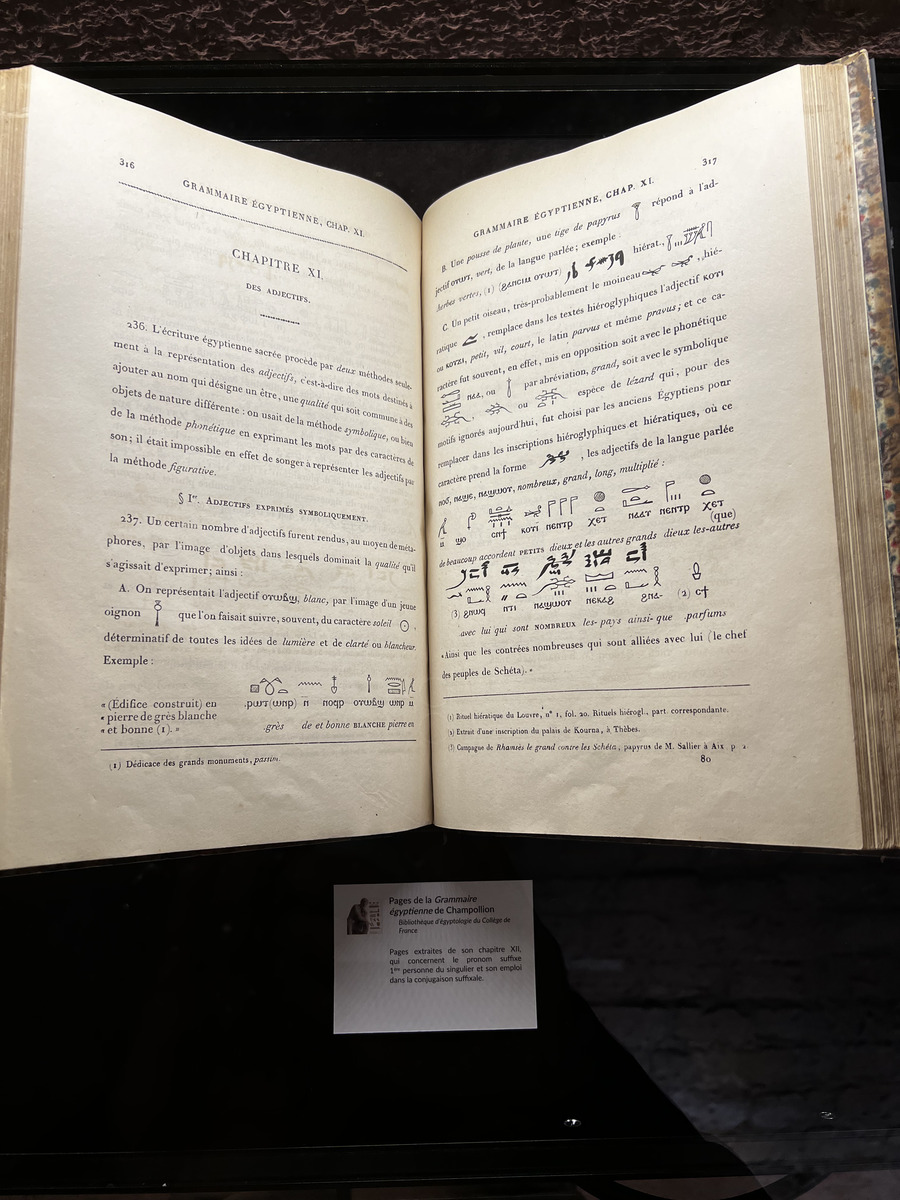 316
GRAMMAIRE ÉGYPTIENNE, CHAP. XI.
CHAPITRE XI.
DES ADJECTIFS.
236. L'écriture égyptienne sacrée procède par deux méthodes seule-
ment à la représentation des adjectifs, c'est-à-dire des mots destinés à
ajouter au nom qui désigne un être, une qualité qui soit commune à des
objets de nature différente : on usait de la méthode symbolique, ou bien
de la méthode phonétique en exprimant les mots par des caractères de
son; il était impossible en effet de songer à représenter les adjectifs par
la méthode figurative.
§ Ier. ADJECTIFS EXPRIMÉS SYMBOLIQUEMENT.
237. Un certain nombre d'adjectifs furent rendus, au moyen de méta-
phores, par l'image d'objets dans lesquels dominait la qualité qu'il
s'agissait d'exprimer; ainsi :
A. On représentait l'adjectif ⲟⲩⲱⲃϣ, blanc, par l'image d'un jeune
oignon que l'on faisait suivre, souvent, du caractère soleil ,
déterminatif de toutes les idées de lumière et de clarté ou blancheur.
Exemple :
« (Édifice construit) en
« pierre de grès blanche
« et bonne (1). »
ⲛ ⲛⲟϥⲣ ⲟⲩⲱⲃϣ ⲱⲛⲓ
grès de et bonne BLANCHE pierre en
(1) Dédicace des grands monuments, passim.
317
GRAMMAIRE ÉGYPTIENNE, CHAP. XI.
B. Une pousse de plante, une tige de papyrus répond à l'ad-
jectif ⲟⲩⲱⲧ, vert, de la langue parlée; exemple :
herbes vertes, (1) hiérat.,
C. Un petit oiseau, très-probablement le moineau , hié-
ratique , remplace dans les textes hiéroglyphiques l'adjectif ⲕⲟⲧⲓ
ou ⲕⲟⲧⲝⲓ, petit, vil, court, le latin parvus et même pravus; et ce ca-
ractère fut souvent, en effet, mis en opposition soit avec le phonétique
ⲛⲁⲁ, ou par abréviation, grand, soit avec le symbolique
, ou espèce de lézard qui, pour des
motifs ignorés aujourd'hui, fut choisi par les anciens Égyptiens pour
remplacer dans les inscriptions hiéroglyphiques et hiératiques, où ce
caractère prend la forme , les adjectifs de la langue parlée
ⲛⲁϣⲉ, ⲛⲁϣⲱⲟⲩ, nombreux, grand, long, multiplié :
ϣⲟ ⲕⲟⲧⲓ ⲛⲉⲛⲧⲣ ⲭⲉⲧ ⲛⲁⲁⲧ ⲛⲉⲛⲧⲣ ⲭⲉⲧ
(que)
de beaucoup accordent PETITS dieux et les autres grands dieux les-autres
(3) ⲛⲧⲓ ⲛⲁϣⲱⲟⲩ ⲛⲉⲕⲁϩ (2) ⲥϯ
avec lui qui sont NOMBREUX les-pays ainsi-que parfums
«Ainsi que les contrées nombreuses qui sont alliées avec lui (le chef
des peuples de Schéta). »
(1) Rituel hiératique du Louvre, n° 1, fol. 20. Rituels hiérogl., part. correspondante.
(2) Extrait d'une inscription du palais de Kourna, à Thèbes.
(3) Campagne de Rhamsès le grand contre les Schéta, papyrus de M. Sallier à Aix p 2
80
Pages de la Grammaire
égyptienne de Champollion
Bibliothèque d'égyptologie du Collège de
France
Pages extraites de son chapitre XII,
qui concernent le pronom suffixe
1ère personne du singulier et son emploi
dans la conjugaison suffixale.